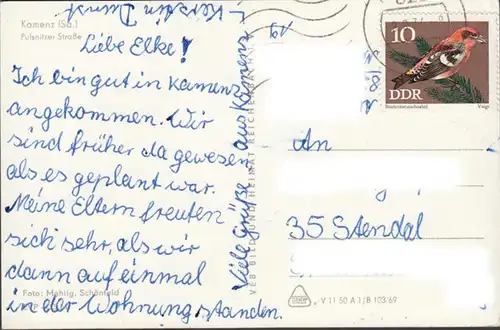 Kamenz (Sa.)
Pulsnitzer Straße
Liebe Elke!
Ich bin gut in Kamenz
angekommen. Wir
sind früher da gewesen
als es geplant war.
Meine Eltern freuten
sich sehr, als wir
dann auf einmal
in der Wohnung standen.
Viele Grüße aus Kamenz
Kerstin
Foto: Mehlig, Schönfeld
VEB BILD UND HEIMAT REICHENBACH
10
DDR
An
35 Stendal
V 11 50 A 1/B 103/69